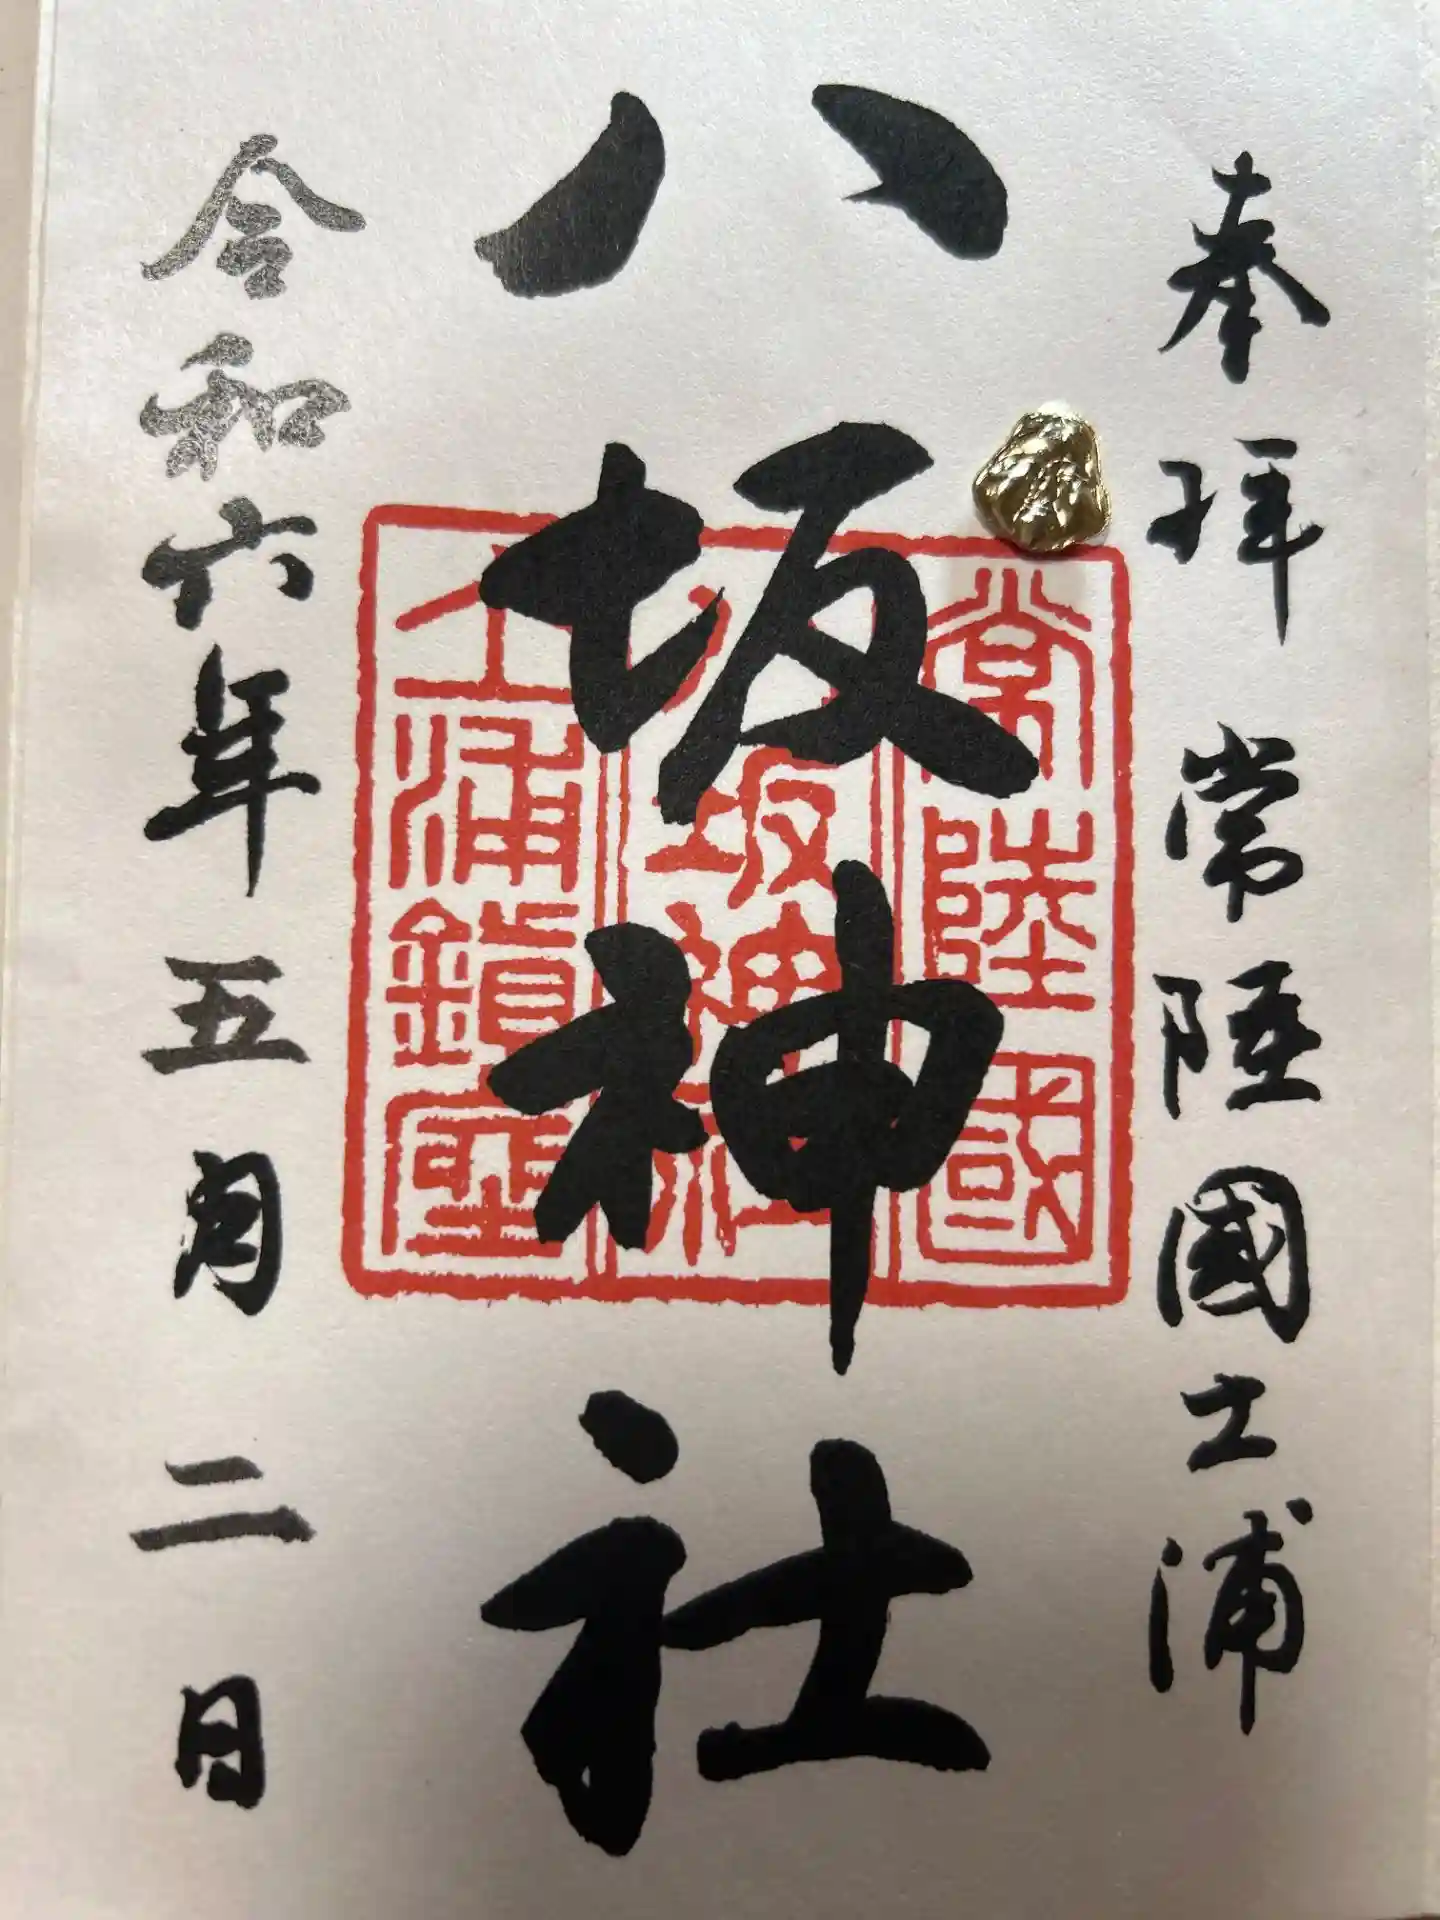 奉拝 常陸國土浦
八坂神社
令和六年五月二日
常陸國
八坂神社
土浦鎮座